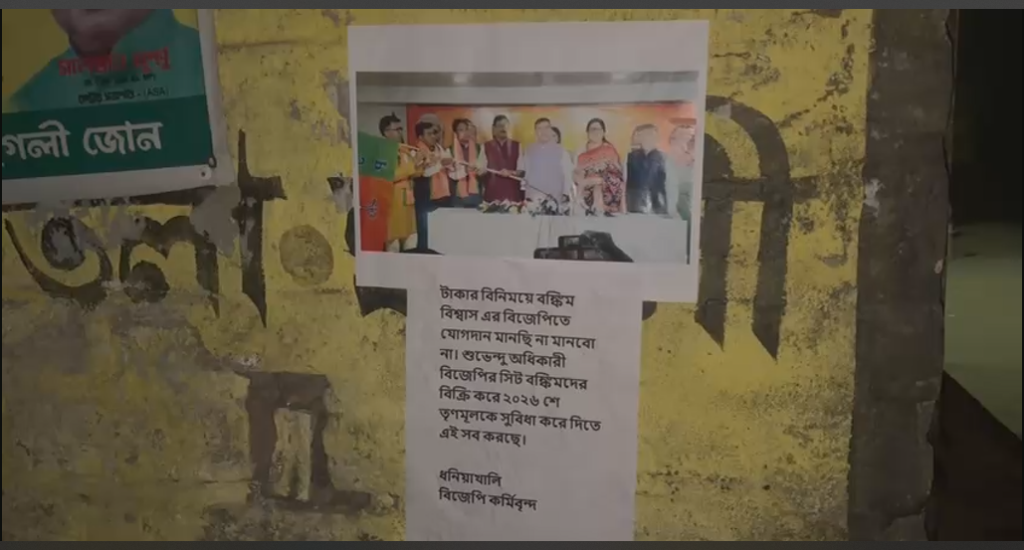 গলী জোন
টাকার বিনিময়ে বঙ্কিম
বিশ্বাস এর বিজেপিতে
যোগদান মানছি না মানবো
না। শুভেন্দু অধিকারী
বিজেপির সিট বঙ্কিমদের
বিক্রি করে ২০২৬ শে
তৃণমূলকে সুবিধা করে দিতে
এই সব করছে।
ধনিয়াখালি
বিজেপি কর্মিবৃন্দ